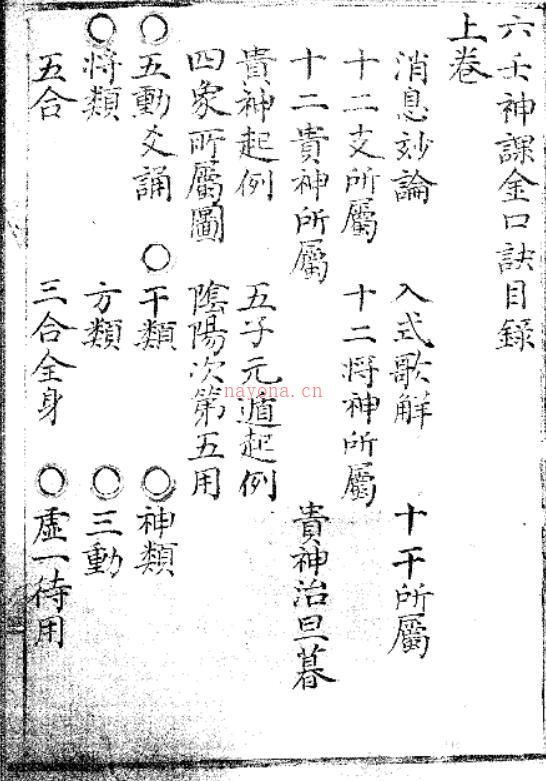 六壬神課金口訣目錄
上卷
消息妙論 入式歌解 十干所屬
十二支所屬 十二將神所屬
十二貴神所屬 貴神治旦暮
貴神起例 五子元遁起例
四象所屬圖 陰陽次第五用
○五動爻誦 ○干類 ○神類
○將類 方類 ○三動
五合 三合全身 ○虛一待用
nayona.cn